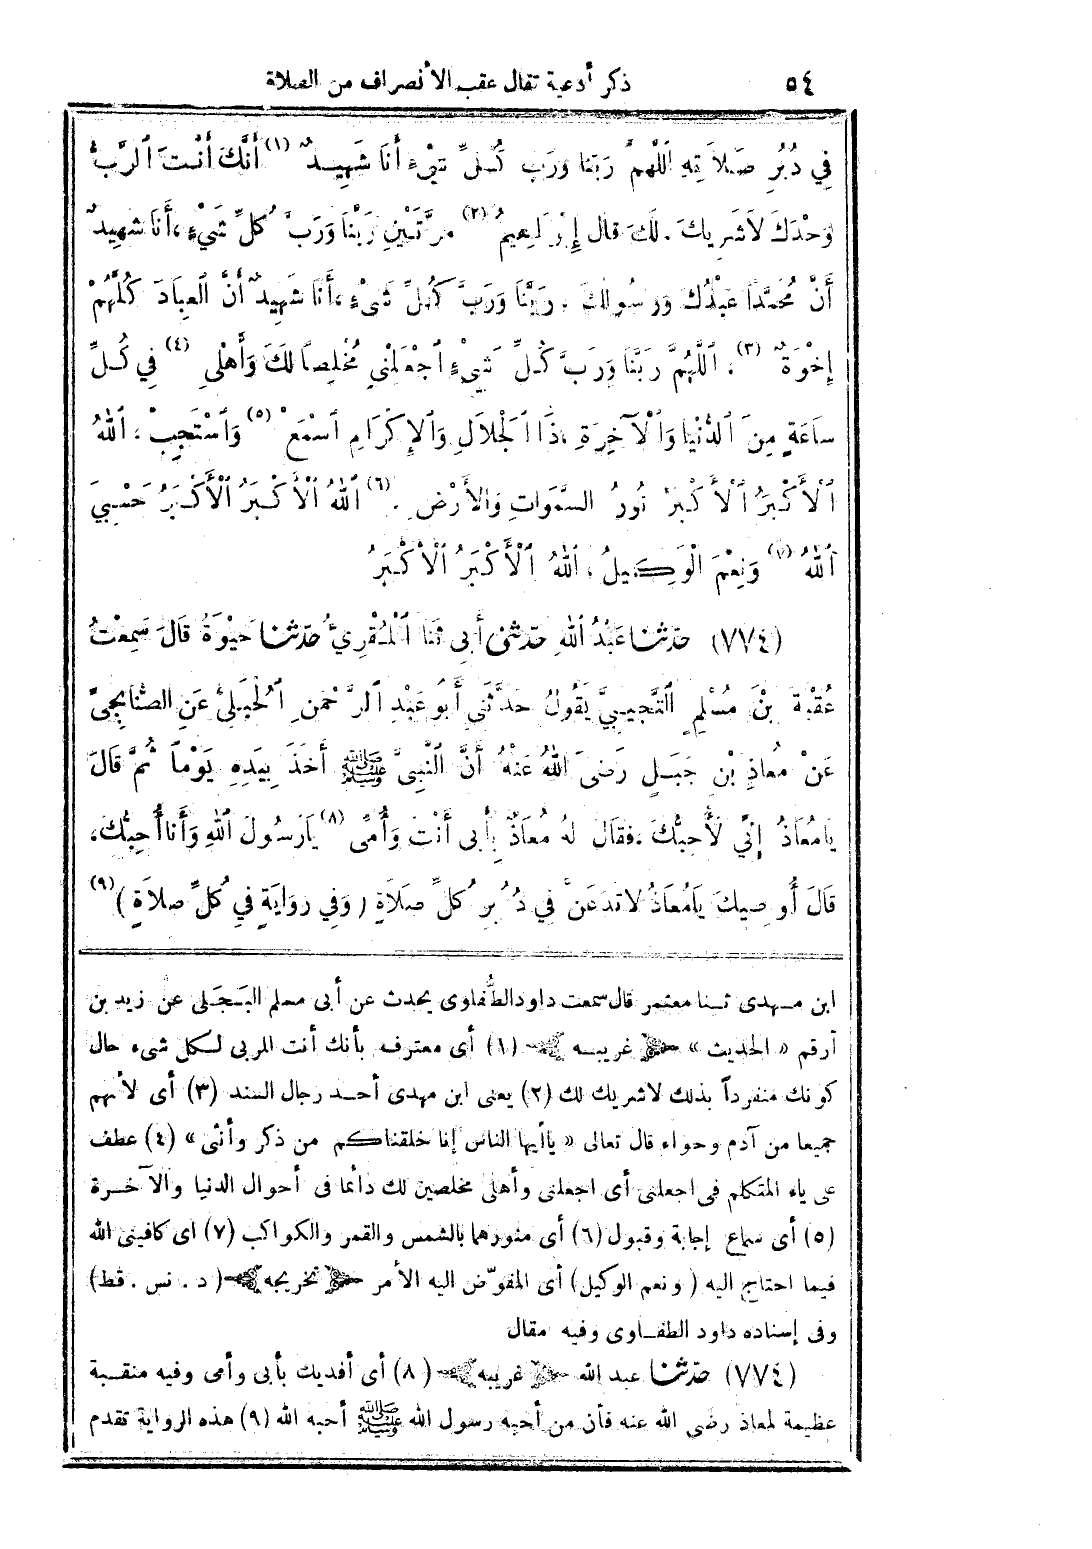 ٥٤ ذكر أدعية تقال عقب الأنصراف من الصلاة
فِي دُبُرِ صَلاَتِهِ اَللّٰهُمَّ رَبَّنَا وَرَبَّ كُلِّ شَيْءٍ أَنَا شَهِيدٌ (١) أَنَّكَ أَنْتَ الرَّبُّ
وَحْدَكَ لاَشَرِيكَ لَكَ قال إِبْرَاهِيمُ (٢) مَرَّتَيْنِ رَبَّنَا وَرَبَّ كُلِّ شَيْءٍ، أَنَا شَهِيدٌ
أَنَّ مُحَمَّدًا عَبْدُكَ وَرَسُولُكَ، رَبَّنَا وَرَبَّ كُلِّ شَيْءٍ، أَنَا شَهِيدٌ أَنَّ الْعِبَادَ كُلَّهُمْ
إِخْوَةٌ (٣)، اَللَّهُمَّ رَبَّنَا وَرَبَّ كُلِّ شَيْءٍ اجْعَلْنِي مُخْلِصًا لَكَ وَأَهْلِي (٤) فِي كُلِّ
سَاعَةٍ مِنَ الدُّنْيَا وَالْآخِرَةِ، ذَا الْجَلَالِ وَالْإِكْرَامِ اسْمَعْ (٥) وَاسْتَجِبْ، اَللهُ
اْلأَكْبَرُ اْلأَكْبَرُ نُورُ السَّمَوَاتِ وَالأَرْضِ (٦) اَللهُ اْلأَكْبَرُ اْلأَكْبَرُ حَسْبِيَ
اَللهُ (٧) وَنِعْمَ الْوَكِيلُ، اَللهُ اْلأَكْبَرُ اْلأَكْبَرُ
(٧٧٤) حدّثنا عَبْدُ اللهِ حدّثنى أَبِي ثَنَا الْمُقْرِيُّ حدّثنا حَيْوَةُ قَالَ سَمِعْتُ
عُقْبَةَ بْنَ مُسْلِمٍ التُّجِيبِيَّ يَقُولُ حَدَّثَنِي أَبُو عَبْدِ الرَّحْمٰنِ الْحُبَلِيُّ عَنِ الصُّنَابِحِيِّ
عَنْ مُعَاذِ بْنِ جَبَلٍ رَضِيَ اللهُ عَنْهُ أَنَّ النَّبِيَّ ﷺ أَخَذَ بِيَدِهِ يَوْمًا ثُمَّ قَالَ
يَامُعَاذُ إِنِّي لَأُحِبُّكَ، فقَالَ لَهُ مُعَاذٌ بِأَبِي أَنْتَ وَأُمِّي (٨) يَارَسُولَ اللهِ وَأَنَا أُحِبُّكَ،
قَالَ أُوصِيكَ يَامُعَاذُ لاَتَدَعَنَّ فِي دُبُرِ كُلِّ صَلَاةٍ (وَفِي رِوَايَةٍ فِي كُلِّ صلَاةٍ) (٩)
ابن مهدى ثنا معتمر قال سمعت داود الطُّفاوى يحدث عن أبى مسلم البجلى عن زيد بن
أرقم « الحديث » غريبه (١) أى معترف بأنك أنت المربى لكل شىء حال
كونك منفرداً بذلك لاشريك لك (٢) يعنى ابن مهدى أحد رجال السند (٣) أى لأنهم
جميعا من آدم وحواء قال تعالى « ياأيها الناس إنا خلقناكم من ذكر وأنثى » (٤) عطف
على ياء المتكلم فى اجعلنى أى اجعلنى وأهلى مخلصين لك دائما فى أحوال الدنيا والآخرة
(٥) أى سماع إجابة وقبول (٦) أى منورهما بالشمس والقمر والكواكب (٧) اى كافينى الله
فيما احتاج اليه (ونعم الوكيل) أى المفوّض اليه الأمر تخريجه (د . نس . قط)
وفى إسناده داود الطفاوى وفيه مقال
(٧٧٤) حدّثنا عبد الله غريبه (٨) أى أفديك بأبى وأمى وفيه منقبة
عظيمة لمعاذ رضي الله عنه فأن من أحبه رسول الله ﷺ أحبه الله (٩) هذه الرواية تقدم